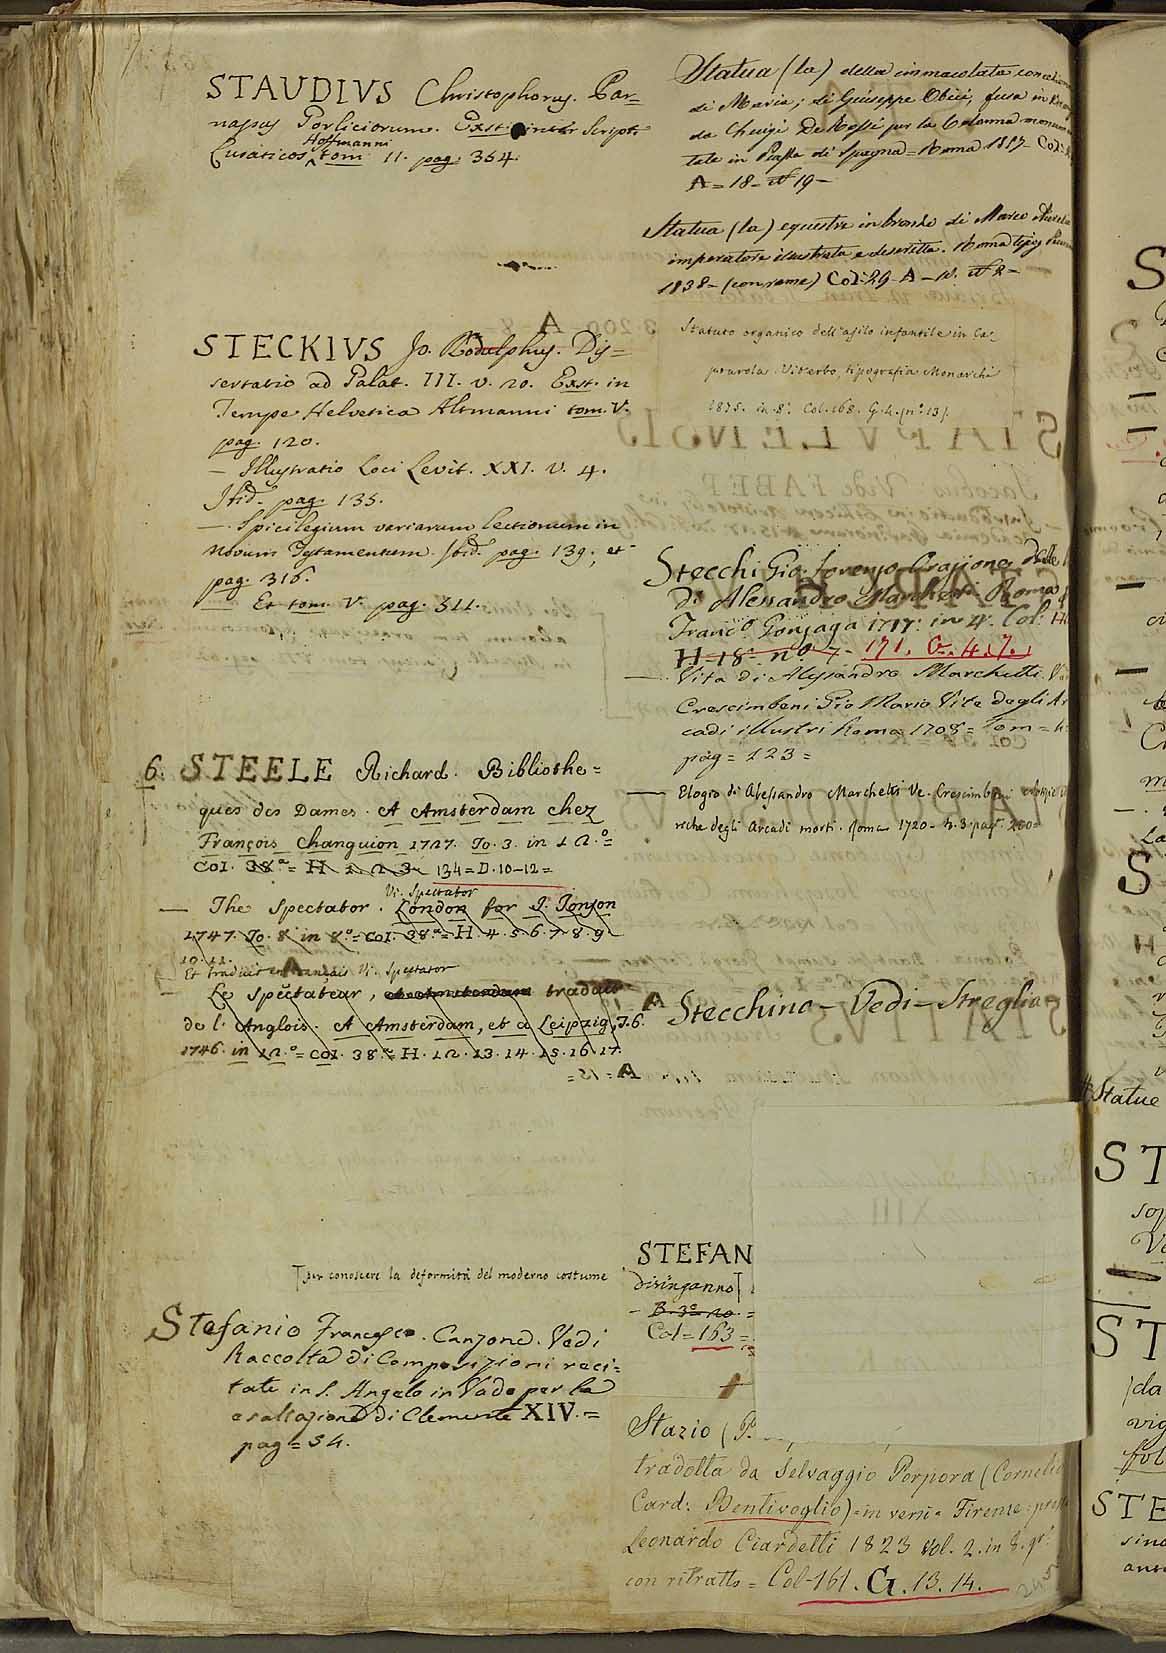 STAUDIVS Christophorus. Par=
nassus Porliciorum. Exst. inter Script.
Hoffmanni
Lusaticos tom. II. pag. 364.
STECKIVS Jo. Rodulphus. Dis=
sertatio ad Palat. III. v. 20. Exst. in
Tempe Helvetica Altmanni tom. V.
pag. 120.
— Illustratio Loci Levit. XXI. v. 4.
Ibid. pag. 135.
— Spicilegium variarum lectionum in
Novum Testamentum. Ibid. pag. 139; et
pag. 316.
Et tom. V. pag. 311.
6. STEELE Richard. Bibliothe=
ques des Dames. A Amsterdam chez
François Changuion 1727. To. 3. in 12.º=
Col. 38ª= H 1. 2. 3. 134=D. 10-12=
Vi. Spectator
— The Spectator. London for J. Tonson
1747. To. 8 in 8.º= Col. 38ª= H. 4. 5. 6. 7. 8. 9.
10. 11.
Et traduit en Français Vi. Spectator
— Le Spectateur, traduit
de l'Anglois. A Amsterdam, et a Leipzig, T. 6.
1746. in 12.º= Col. 38ª= H. 12. 13. 14. 15. 16. 17.
per conoscere la deformità del moderno costume
Stefanio Francesco. Canzone. Vedi
Raccolta di Composizioni reci=
tate in S. Angelo in Vado per la
esaltazione di Clemente XIV.=
pag= 54.
Statua (la) della immacolata
di Maria; di Giuseppe Obici, fusa in
da Luigi De Rossi per la Colonna
tale in Piazza di Spagna= Roma 1857- Col:
A= 18- nº 19-
Statua (la) equestre in bronzo di Marco Aurelio
imperatore illustrata e descritta. Roma tipog.
1838- (con rame) Col: 29- A- 10. nº 2-
Statuto organico dell'asilo infantile in Ca=
prarola. Viterbo, tipografia Monarchi
1875. in 8º. Col. 168. G. 4. (nº 13).
Stecchi Gio. Lorenzo Orazione delle
di Alessandro Marchetti Roma
Francº Gonzaga 1717: in 4º. Col: H
H-18- nº 7- 171. G. 4. 7.
— Vita di Alessandro Marchetti. V
Crescimbeni Gio Mario Vite degli Ar
cadi illustri Roma 1708= Tom=
pag= 123=
— Elogio di Alessandro Marchetti Ve. Crescimbeni
riche degli Arcadi morti. Roma 1720- t. 3. pag. 200=
Stecchino - Vedi - Streglia
STEFAN
Disinganno
- B. 3ª 20. =
Col= 163=
Stazio (P.
tradotta da Selvaggio Porpora (Cornelio
Card: Bentivoglio)=in versi= Firenze:
Leonardo Ciardetti 1823 vol. 2. in 8. grº
con ritratto= Col-161. G. 13. 14.
S
S
Statue
ST
ST
(da
vig
fol
STE